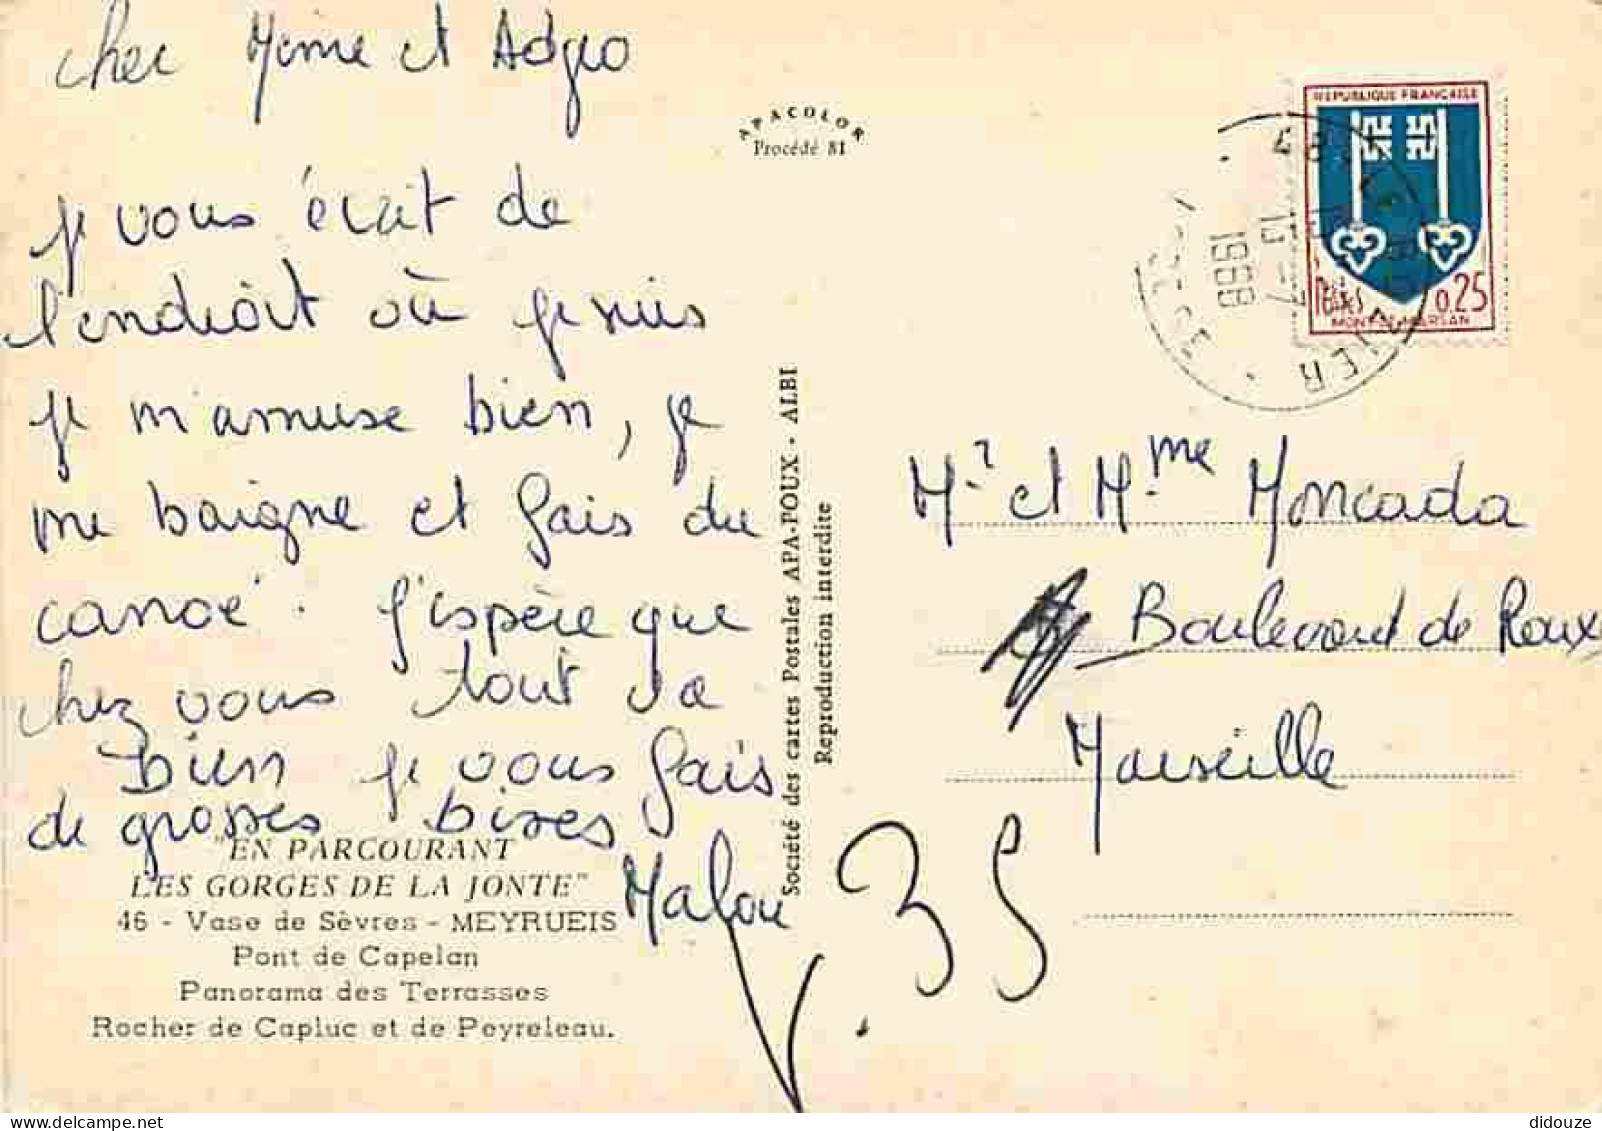 cher Meme et
je vous écrit de
l'endroit où je suis
je m'amuse bien, je
me baigne et fais du
canoé. J'espère que
chez vous tout va
bien je vous fais
de grosses bises
Malou
"EN PARCOURANT
LES GORGES DE LA JONTE"
46 - Vase de Sèvres - MEYRUEIS
Pont de Capelan
Panorama des Terrasses
Rocher de Capluc et de Peyreleau.
APACOLOR
Procédé 81
Société des cartes Postales APA-POUX - ALBI
Reproduction interdite
REPUBLIQUE FRANÇAISE
POSTES 0,25
MONT-DE-MARSAN
1966
Mr et Mme Moncada
Boulevard de Roux
Marseille
35
didouze